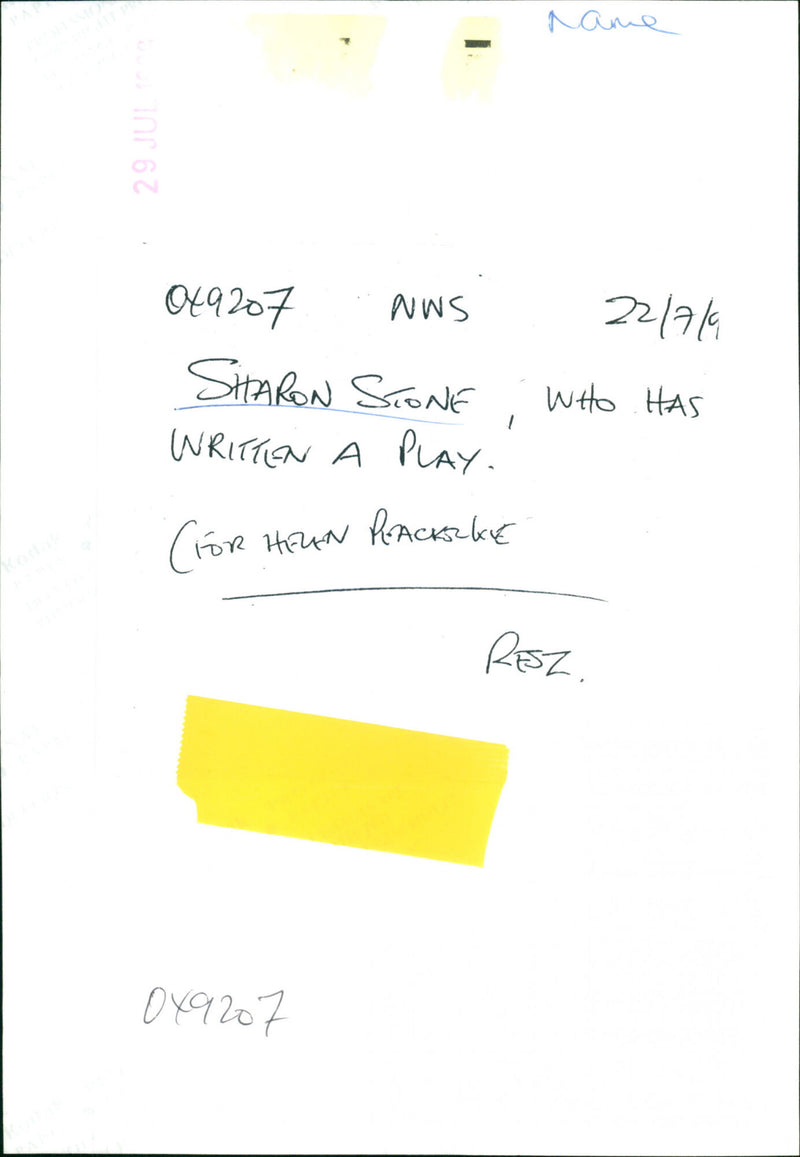 Name
29 JUL
OX9207 NWS 22/7/9
SHARON STONE, WHO HAS
WRITTEN A PLAY.
(FOR HELEN PEACOCKE
REZ.
OX9207